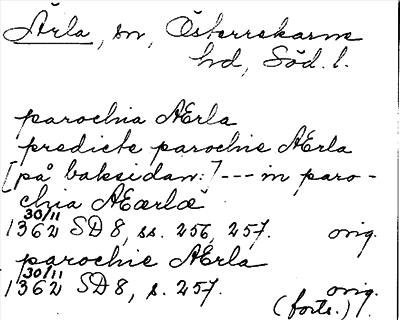 Ärla, sn, Österrekarne
hd, Söd. l.
parochia AErla
predicte parochie AErla
[på baksidan:] --- in paro-
chia AEærlæ
30/11
1362 SD 8, ss. 256, 257. orig.
parochie AErla
30/11
1362 SD 8, s. 257. orig.
(forts.).